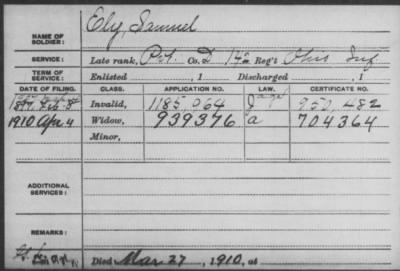 NAME OF SOLDIER: Ely, Samuel
SERVICE: Late rank, Pvt. Co. D, Reg't Ohio Inf
TERM OF SERVICE: Enlisted , 1 Discharged , 1
DATE OF FILING. CLASS. APPLICATION NO. LAW. CERTIFICATE NO.
Feb Invalid, 1185,064 950,482
1910 Apr 4 Widow, 939376 a 704364
Minor,
ADDITIONAL SERVICES:
REMARKS:
Died Mar 27 , 1910, at